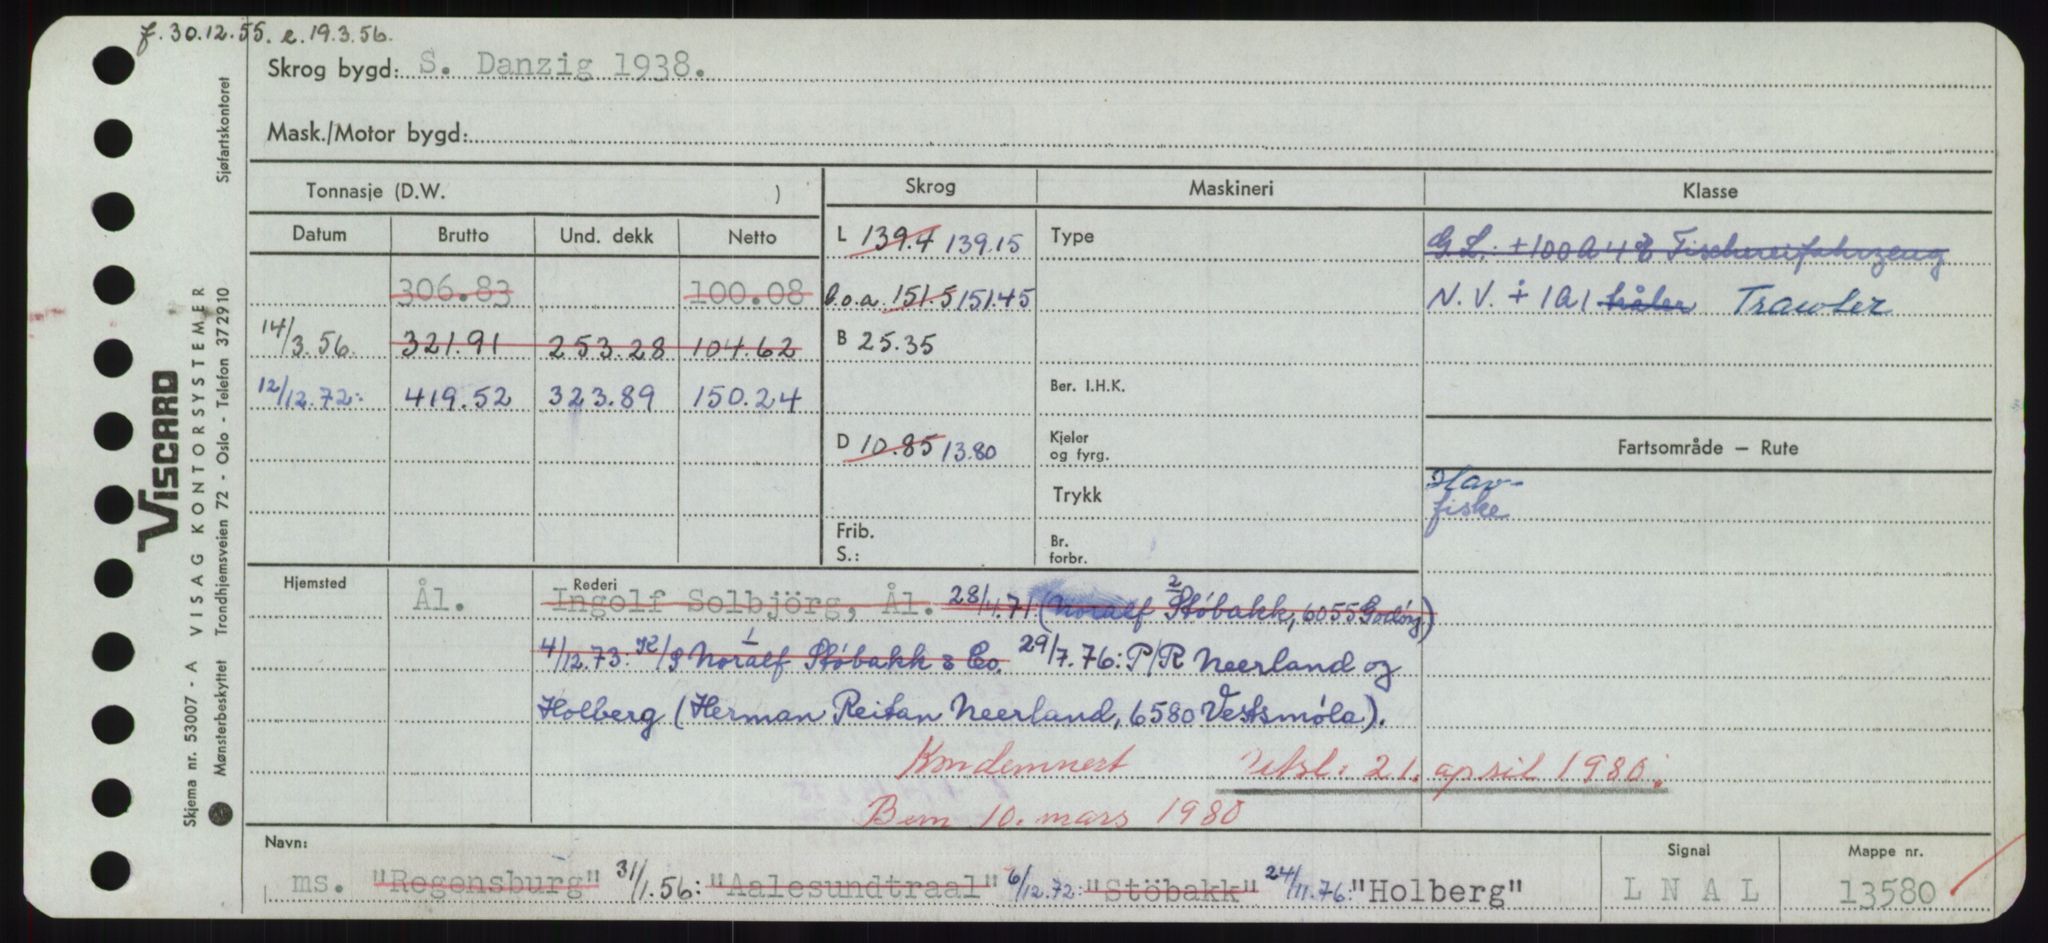 f. 30.12.55. e. 19.3.56.
Skrog bygd: S. Danzig 1938.
Mask./Motor bygd:
Tonnasje (D.W. ) Skrog Maskineri Klasse
Datum Brutto Und. dekk Netto L 139.4 139.15 Type G.L. + 100 A 4 Fischereifahrzeug
306.83 100.08 l.o.a. 151.5 151.45 N.V. + 1A1 håler Trawler
14/3.56. 321.91 253.28 104.62 B 25.35
12/12.72: 419.52 323.89 150.24 Ber. I.H.K.
D 10.85 13.80 Kjeler og fyrg. Fartsområde – Rute
Trykk Hav-
fiske
Frib. S.: Br. forbr.
Hjemsted Ål. Rederi Ingolf Solbjörg, Ål. 28/4.71 (Noralf 2 Støbakk, 6055 Godøy)
4/12.73: K/S Noralf 1 Støbakk & Co. 29/7.76: P/R Neerland og
Holberg (Herman Reitan Neerland, 6580 Vestsmøla).
Kondemnert Utsl: 21. april 1980.
Bem 10. mars 1980
Navn: Signal Mappe nr.
ms. "Regensburg" 31/1.56: "Aalesundtraal" 6/12.72: "Stöbakk" 24/11.76: "Holberg" L N A L 13580
VISCARD
Skjema nr. 53007 - A VISAG KONTORSYSTEMER
Mønsterbeskyttet Trondhjemsveien 72 - Oslo - Telefon 37 29 10 Sjøfartskontoret